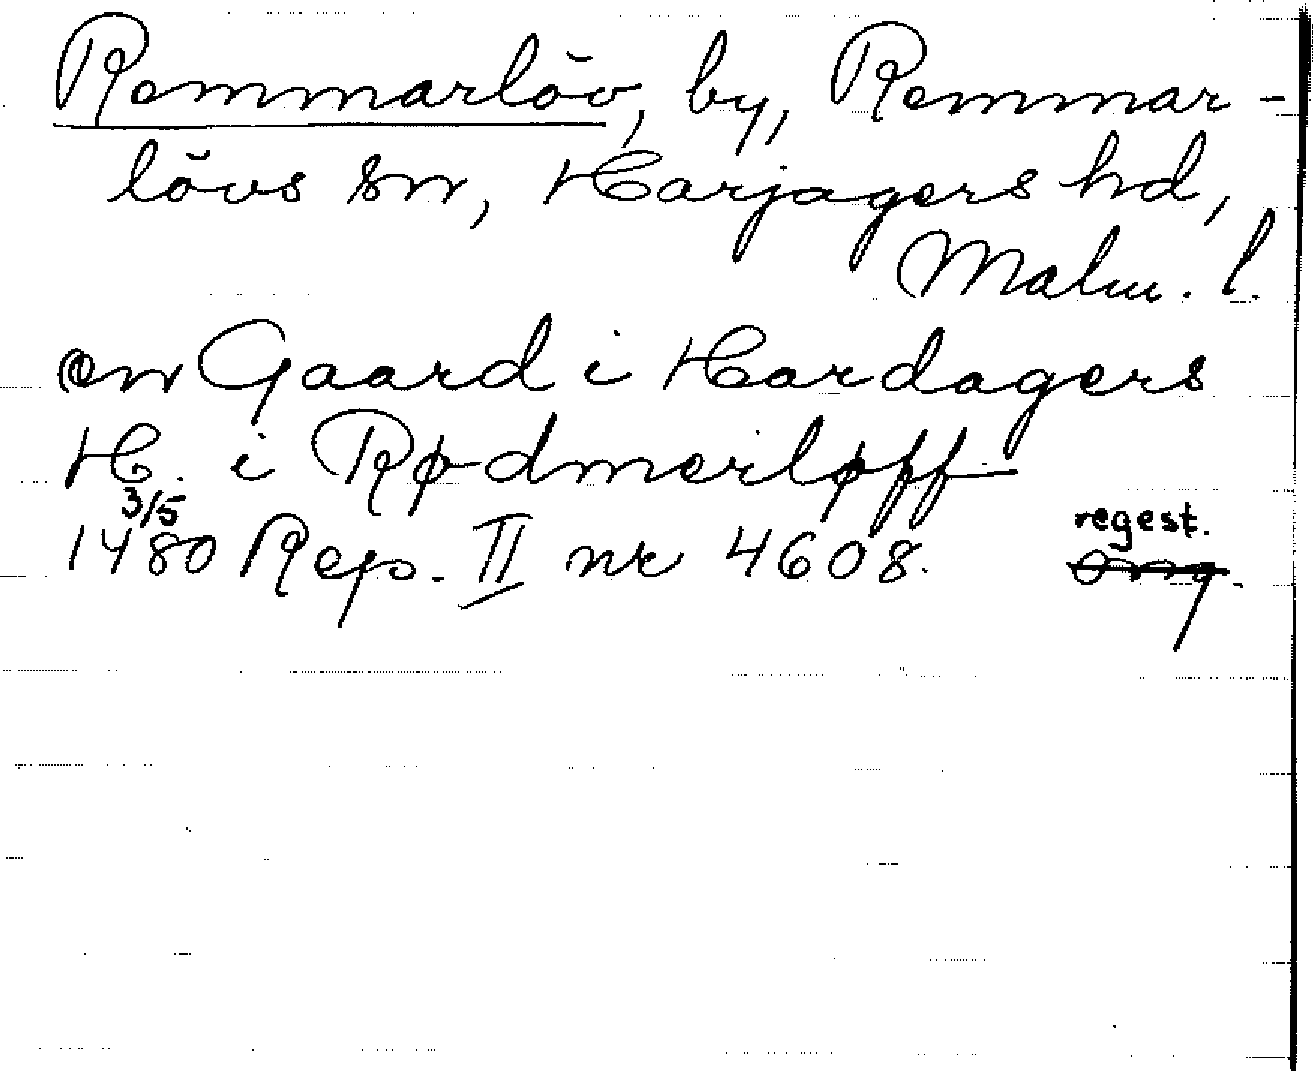 Remmarlöv, by, Remmar-
lövs sn, Harjagers hd,
Malm. l.
en Gaard i Hardagers
H. i Rødmerløff
3/5
1480 Rep. II nr 4608. regest.